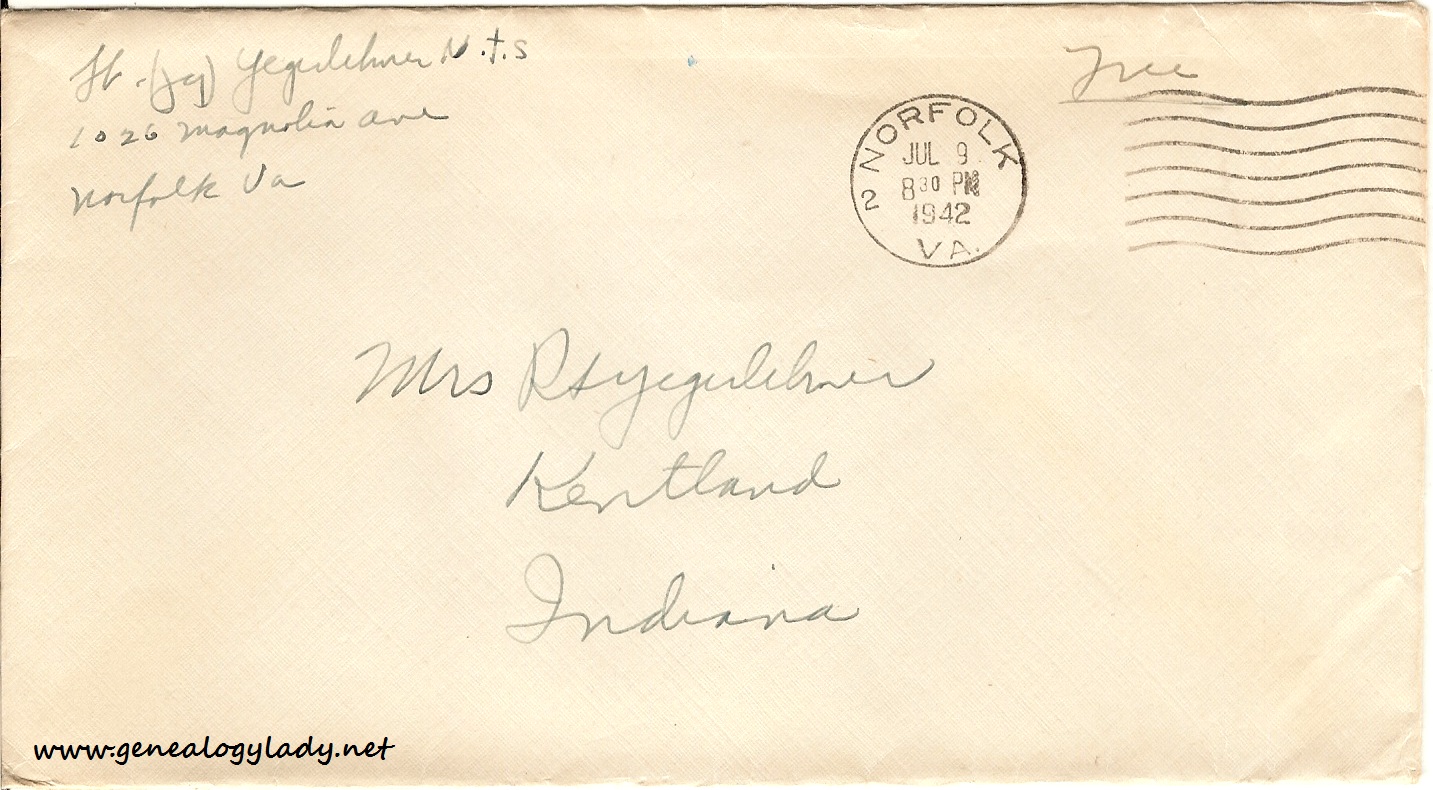 Lt. (jg) Yegerlehner N.T.S
1026 Magnolia Ave
Norfolk Va
Free
NORFOLK
JUL 9
8 30 PM
1942
2
VA.
Mrs RH Yegerlehner
Kentland
Indiana
www.genealogylady.net